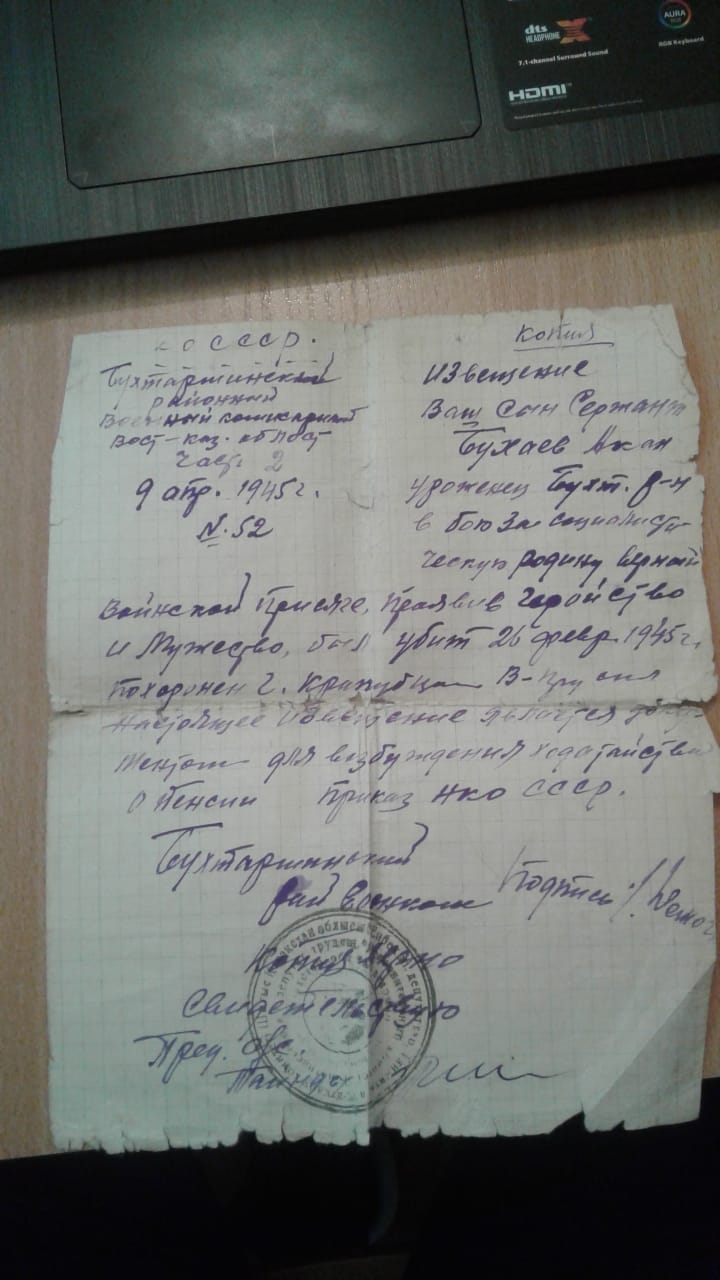 dts
HEADPHONE X
7.1-channel Surround Sound
AURA
RGB Keyboard
HDMI
о СССР.
Бухтарминский
районный
Военный комиссариат
Вост-каз. области
Часть 2
9 апр. 1945г.
N. 52
Копия
Извещение
Ваш Сын Сержант
Бухаев Акан
уроженец Бухт. р-н
в бою За социалисти-
ческую родину верный
Воинской Присяге, проявив Геройство
и Мужество, был убит 26 февр. 1945г.
похоронен г. В-Пруссия
Настоящее Извещение является доку-
ментом для возбуждения ходатайства
о Пенсии приказ НКО СССР.
Бухтарминский
рай военком Подпись /
Копия Верно
Свидетельствую
Пред. с/с